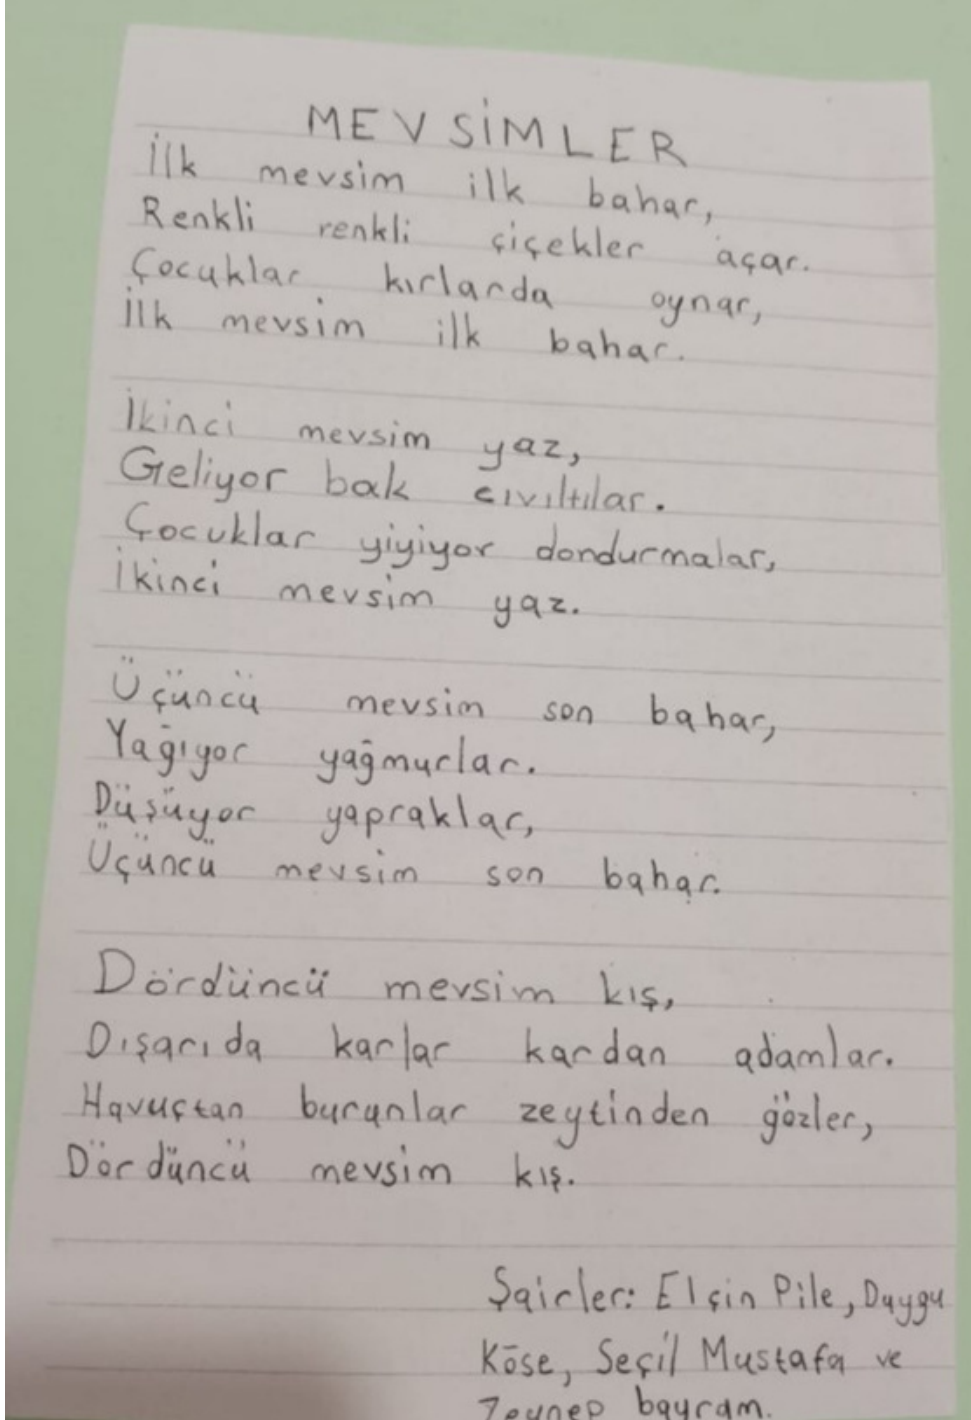 MEVSİMLER
İlk mevsim ilk bahar,
Renkli renkli çiçekler açar.
Çocuklar kırlarda oynar,
İlk mevsim ilk bahar.
İkinci mevsim yaz,
Geliyor bak cıvıltılar.
Çocuklar yiyiyor dondurmalar,
İkinci mevsim yaz.
Üçüncü mevsim son bahar,
Yağıyor yağmurlar.
Düşüyor yapraklar,
Üçüncü mevsim son bahar.
Dördüncü mevsim kış,
Dışarıda karlar kardan adamlar.
Havuçtan burunlar zeytinden gözler,
Dördüncü mevsim kış.
Şairler: Elçin Pile, Duygu
Köse, Seçil Mustafa ve
Zeynep bayram.